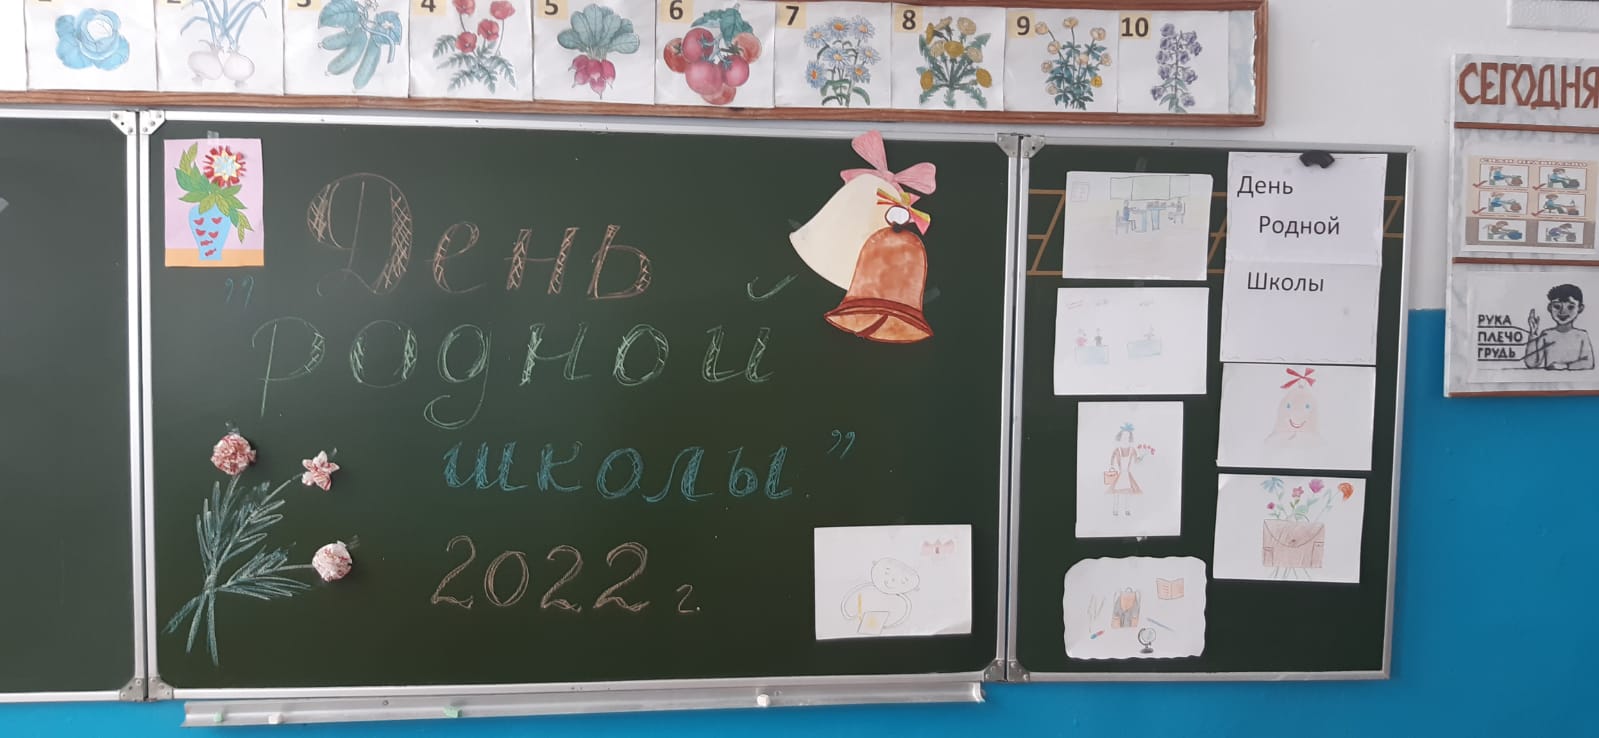 1 2 3 4 5 6 7 8 9 10
День
"родной
школы"
2022 г.
День
Родной
Школы
СЕГОДНЯ
РУКА
ПЛЕЧО
ГРУДЬ